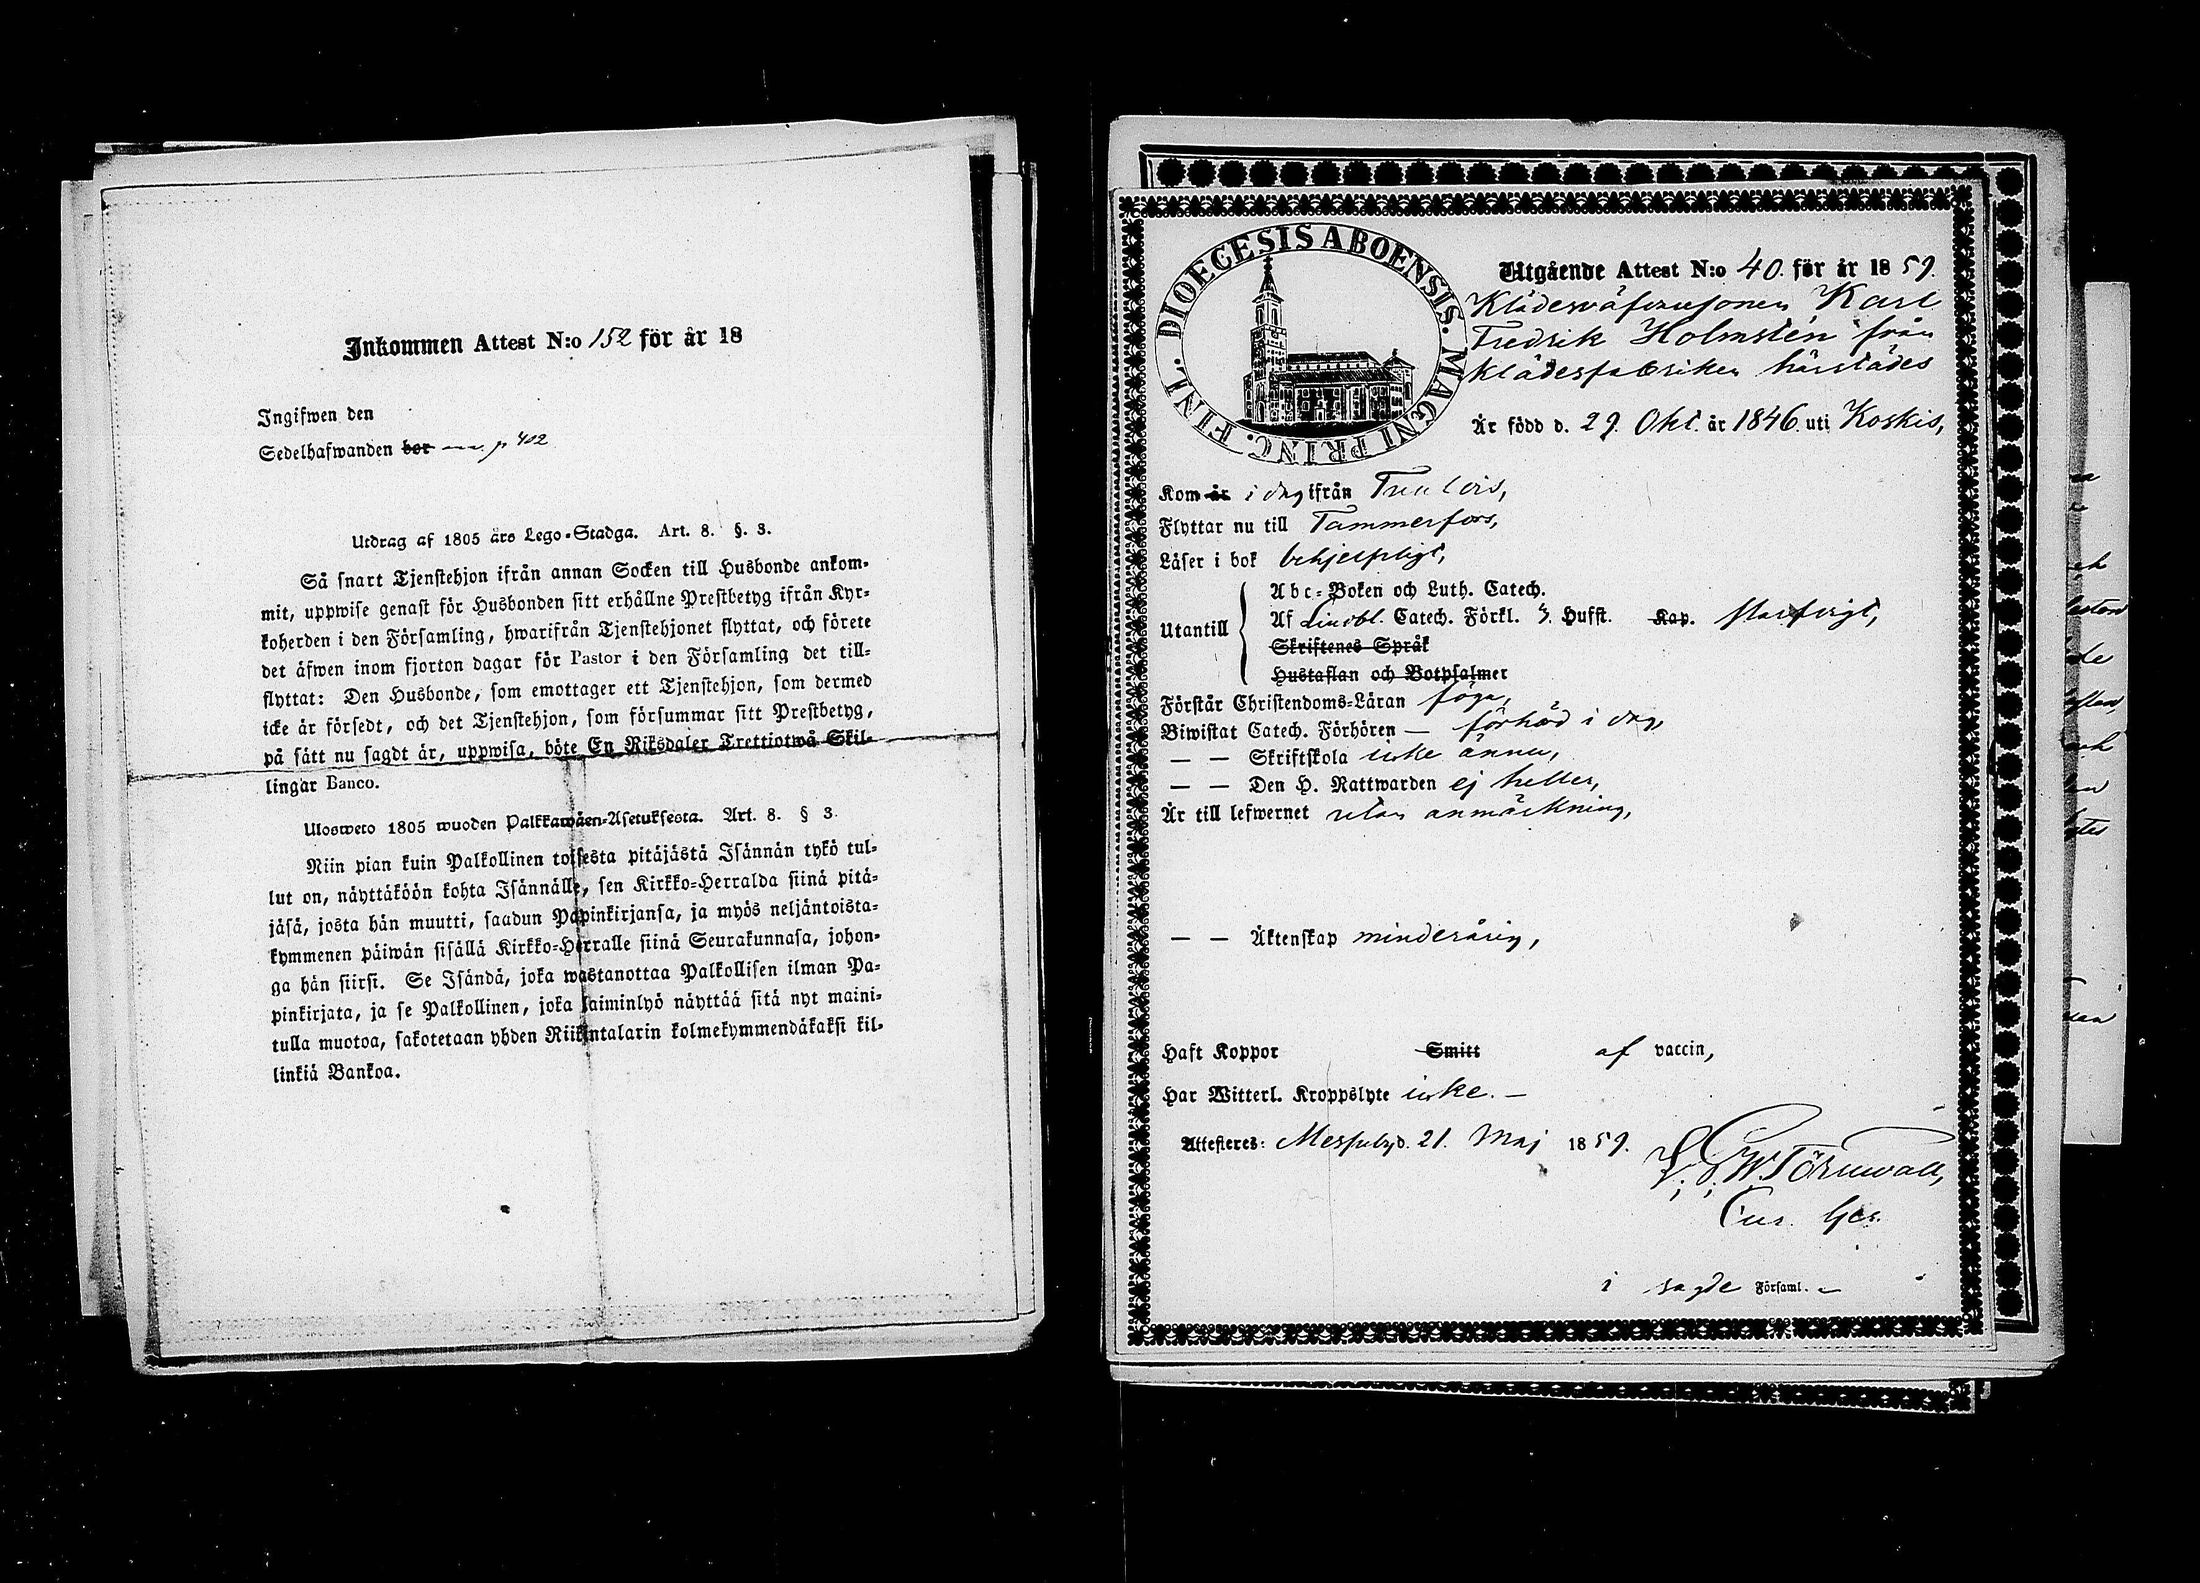 Inkommen Attest N:o 152 för år 18
Ingifwen den
Sedelhafwanden bor p. 402
Utdrag af 1805 års Lego-Stadga. Art. 8. §. 3.
Så snart Tjenstehjon ifrån annan Socken till Husbonde ankom-
mit, uppwise genast för Husbonden sitt erhållne Prestbetyg ifrån Kyr-
koherden i den Församling, hwarifrån Tjenstehjonet flyttat, och förete
det äfwen inom fjorton dagar för Pastor i den Församling det till-
flyttat: Den Husbonde, som emottager ett Tjenstehjon, som dermed
icke är försedt, och det Tjenstehjon, som försummar sitt Prestbetyg,
på sätt nu sagdt är, uppwisa, böte En Riksdaler Trettiotwå Skil-
lingar Banco.
Ulosweto 1805 wuoden Palkkawäen-Asetuksesta. Art. 8. § 3.
Niin pian kuin Palkollinen toisesta pitäjästä Isännän tykö tul-
lut on, näyttäköön kohta Isännälle, sen Kirkko-Herralda siinä pitä-
jäsä, josta hän muutti, saadun Papinkirjansa, ja myös neljäntoista-
kymmenen päiwän sisällä Kirkko-Herralle siinä Seurakunnasa, johon-
ga hän siirsi. Se Isändä, joka wastanottaa Palkollisen ilman Pa-
pinkirjata, ja se Palkollinen, joka laiminlyö näyttää sitä nyt maini-
tulla muotoa, sakotetaan yhden Riikintalarin kolmekymmendäkaksi kil-
linkiä Bankoa.
DIOECESIS ABOENSIS. MAGNI PRINC. FINL.
Utgående Attest N:o 40. för år 1859.
Karl
Fredrik Holmstén från
Klädesfabriken härstädes
Är född d. 29. Okt. år 1846. uti Koskis,
Kom år i dag ifrån
Flyttar nu till Tammerfors,
Läser i bok behjelpligt,
Utantill
Abc-Boken och Luth. Catech.
Af Lindbl. Catech. Förkl. 3. Hufst. Kap.
Skriftenes Språk
Hustaflan och Botpsalmer
Förstår Christendoms-Läran föga,
Biwistat Catech. Förhören — förhörd i dag,
— — Skriftskola icke ännu,
— — Den H. Nattwarden ej heller,
Är till lefwernet utan anmärkning,
— — Äktenskap minderårig,
Haft Koppor Smitt af vaccin,
Har Witterl. Kroppslyte icke. —
Attesteres: Messuby d. 21. Maj 1859.
Törnwall,
i sagde Församl. —